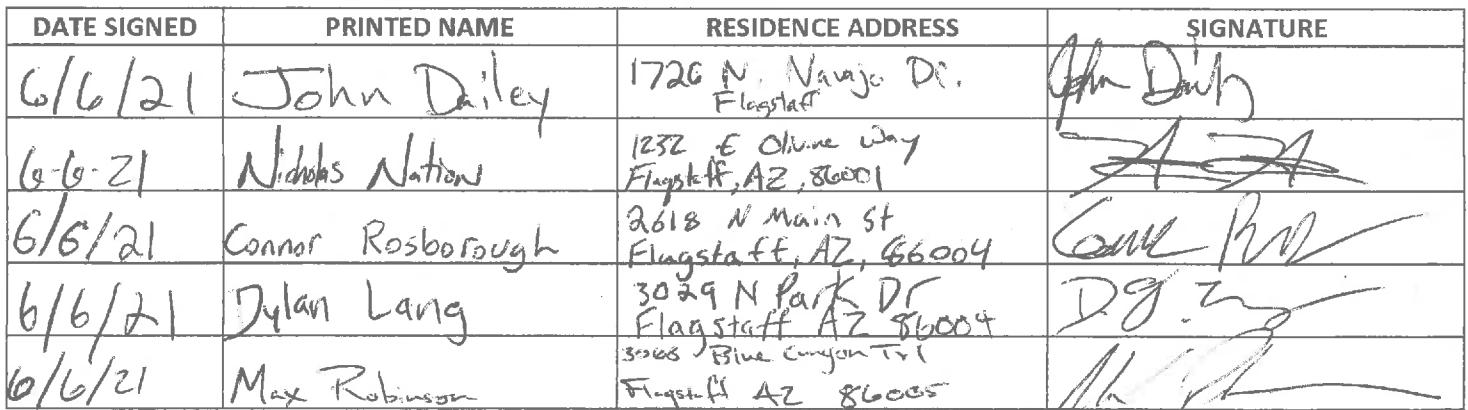 DATE SIGNED PRINTED NAME RESIDENCE ADDRESS SIGNATURE
6/6/21 John Dailey 1726 N. Navajo Dr. John Daily
Flagstaff
6-6-21 Nicholas Nation 1232 E Olivine Way
Flagstaff, AZ, 86001
6/6/21 Connor Rosborough 2618 N Main St
Flagstaff, AZ, 86004
6/6/21 Dylan Lang 3029 N Park Dr
Flagstaff AZ 86004
6/6/21 Max Robinson 3068 Blue Canyon Trl
Flagstaff AZ 86005